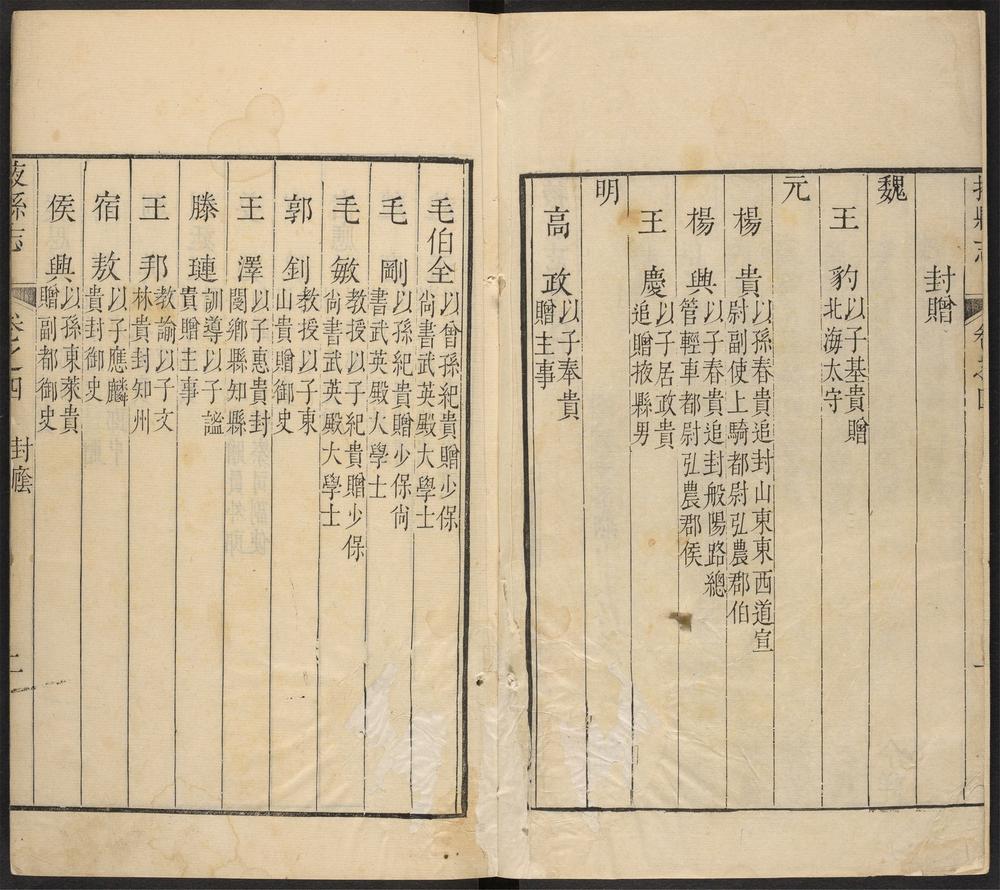 掖縣志
卷之四
封贈
魏
王豹以子基貴贈
北海太守
元
楊貴以孫春貴追封山東東西道宣
尉副使上騎都尉弘農郡伯
楊興以子春貴追封般陽路總
管輕車都尉弘農郡侯
王慶以子居政貴
追贈掖縣男
明
高政以子奉貴
贈主事
毛伯全以曾孫紀貴贈少保
尙書武英殿大學士
毛剛以孫紀貴贈少保尙
書武英殿大學士
毛敏教授以子紀貴贈少保
尙書武英殿大學士
郭釗教授以子東
山貴贈御史
王澤以子惠貴封
閿鄉縣知縣
滕璉訓導以子謐
貴贈主事
王邦教諭以子文
林貴封知州
宿敖以子應麟
貴封御史
侯興以孫東萊貴
贈副都御史
掖縣志
卷之四
封廕